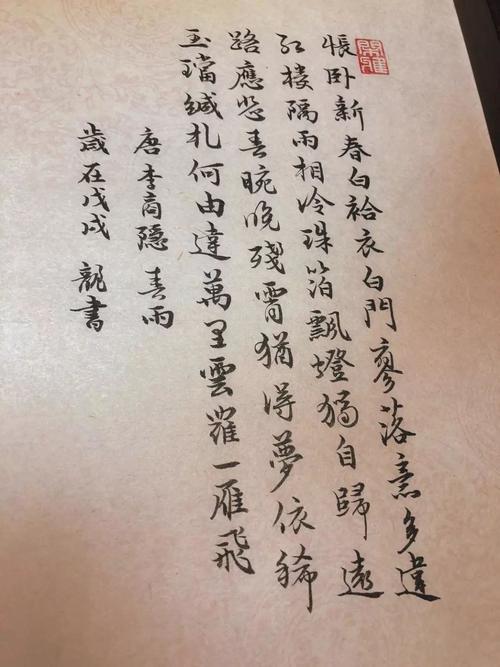 悵卧新春白袷衣白門寥落意多違
红楼隔雨相冷珠箔飄燈獨自歸遠
路應悲春晼晚殘宵猶得夢依稀
玉璫緘札何由達萬里雲羅一雁飛
唐李商隱 春雨
歲在戊戌 書